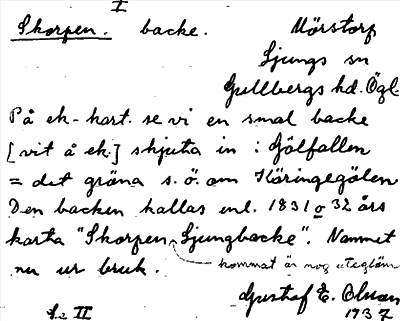 I
Skorpen. backe. Mörstorp
Ljungs sn
Gullbergs hd. Ögl.
På ek-kart. se vi en smal backe
[vit å ek.] skjuta in i Gölfallen
= det gröna s. ö. om Käringegölen
Den backen kallas enl. 1831 o 32 års
karta "Skorpen, Ljungbacke". Namnet
nu ur bruk. kommat är nog uteglöm
Gustaf E. Olsson
S. II 1737